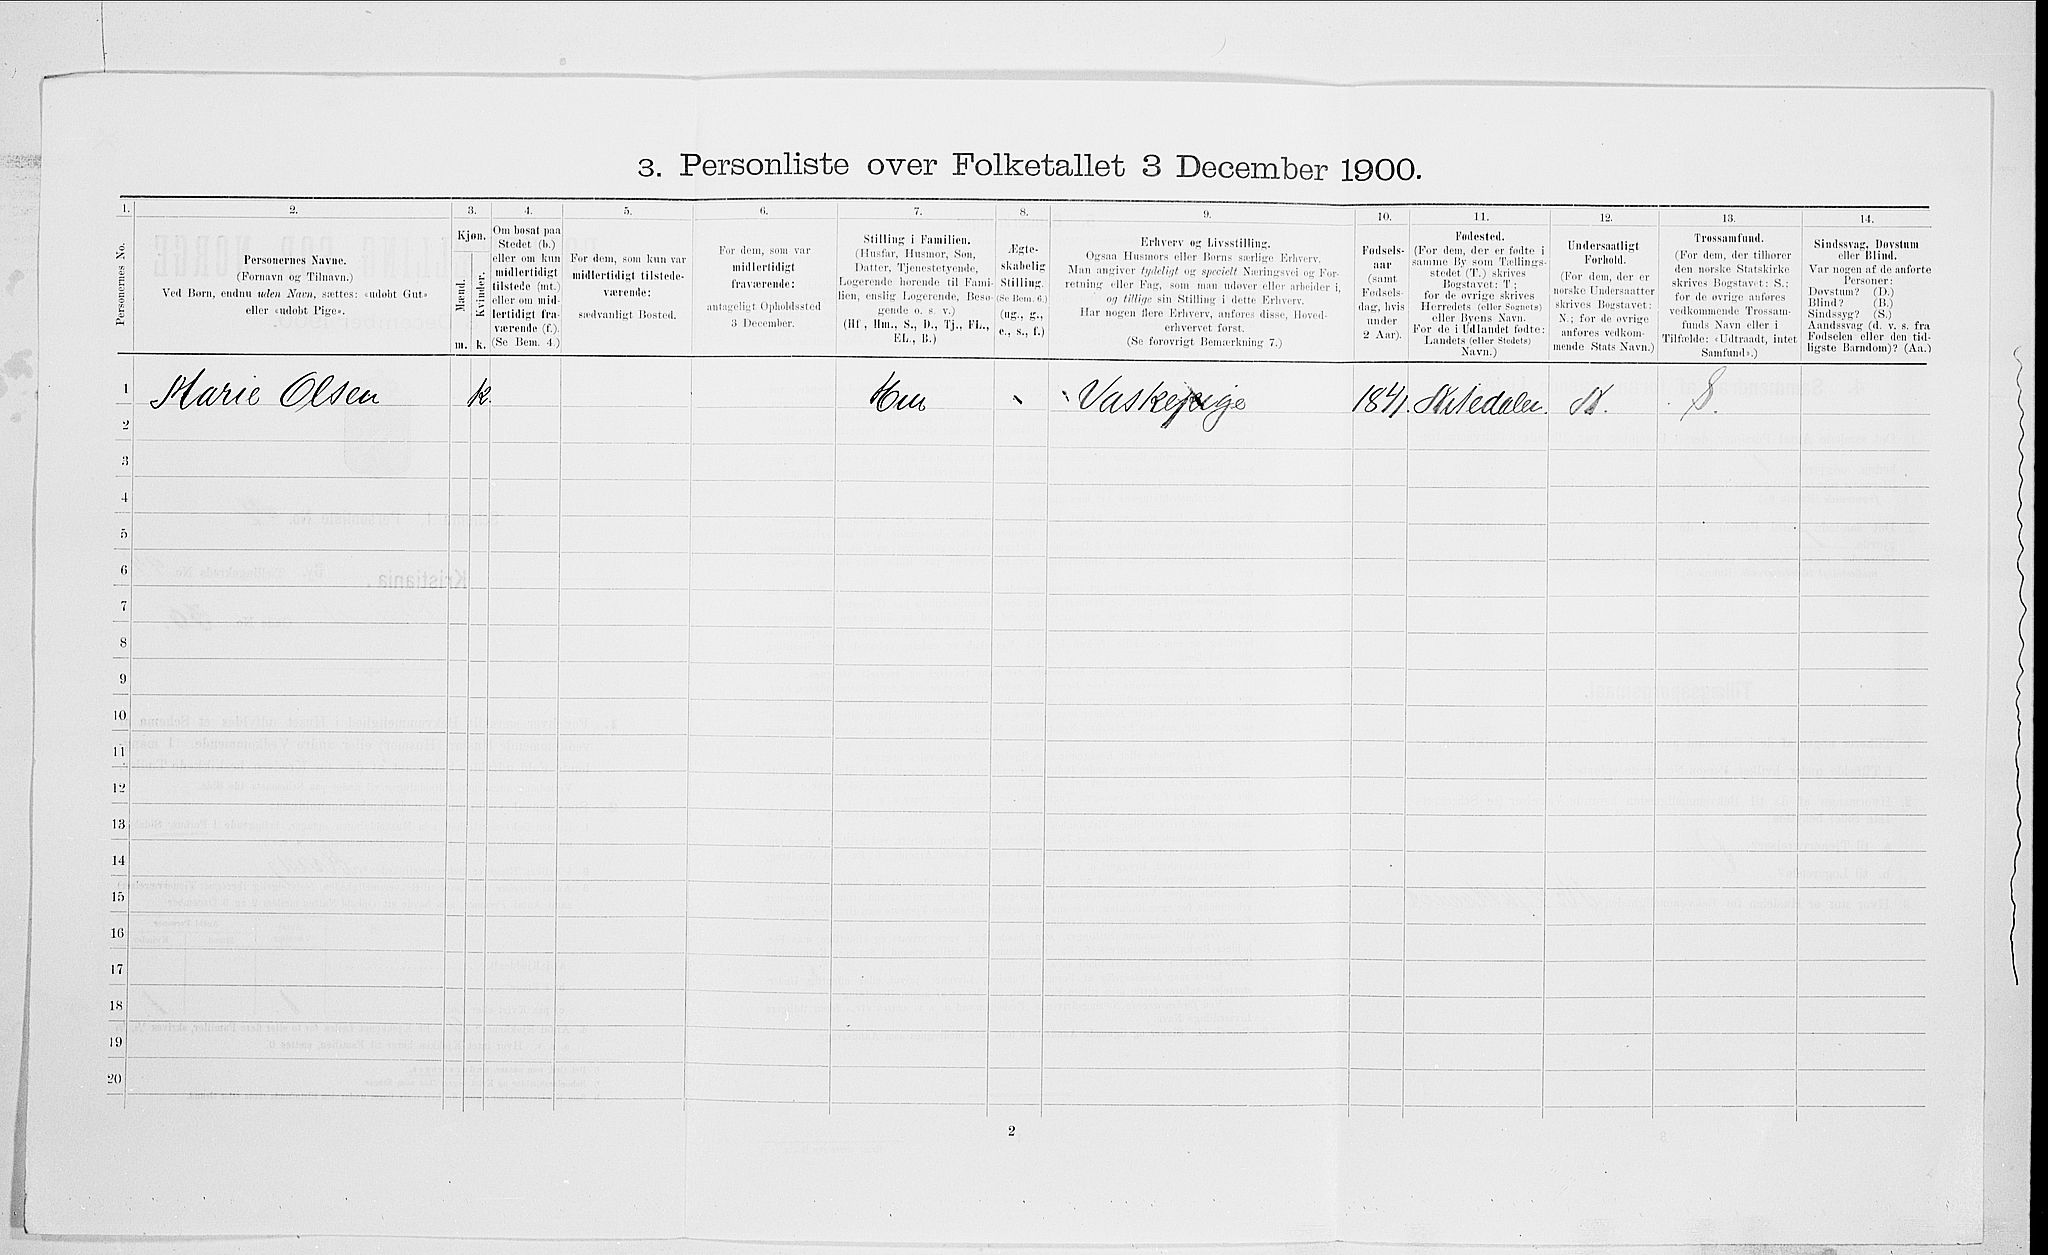 3. Personliste over Folketallet 3 December 1900.
1. 2. 3. 4. 5. 6. 7. 8. 9. 10. 11. 12. 13. 14.
Personernes No.
Personernes Navne.
(Fornavn og Tilnavn.)
Ved Børn, endnu uden Navn, sættes: «udøbt Gut»
eller «udøbt Pige».
Kjøn.
Mænd.
Kvinder.
m. k.
Om bosat paa
Stedet (b.)
eller om kun
midlertidigt
tilstede (mt.)
eller om mid-
lertidigt fra-
værende (f.).
(Se Bem. 4.)
For dem, som kun var
midlertidigt tilstede-
værende:
sædvanligt Bosted.
For dem, som var
midlertidigt
fraværende:
antageligt Opholdssted
3 December.
Stilling i Familien.
(Husfar, Husmor, Søn,
Datter, Tjenestetyende,
Logerende hørende til Fami-
lien, enslig Logerende, Besø-
gende o. s. v.)
(Hf., Hm., S., D., Tj., FL.,
EL., B.)
Ægte-
skabelig
Stilling.
(Se Bem. 6.)
(ug., g.,
e., s., f.)
Erhverv og Livsstilling.
Ogsaa Husmors eller Børns særlige Erhverv.
Man angiver tydeligt og specielt Næringsvei og For-
retning eller Fag, som man udøver eller arbeider i,
og tillige sin Stilling i dette Erhverv.
Har nogen flere Erhverv, anføres disse, Hoved-
erhvervet først.
(Se forøvrigt Bemærkning 7.)
Fødsels-
aar
(samt
Fødsels-
dag, hvis
under
2 Aar).
Fødested.
(For dem, der er fødte i
samme By som Tællings-
stedet (T.) skrives
Bogstavet: T;
for de øvrige skrives
Herredets (eller Sognets)
eller Byens Navn.
For de i Udlandet fødte:
Landets (eller Stedets)
Navn.)
Undersaatligt
Forhold.
(For dem, der er
norske Undersaatter
skrives Bogstavet:
N.; for de øvrige
anføres vedkom-
mende Stats Navn.)
Trossamfund.
(For dem, der tilhører
den norske Statskirke
skrives Bogstavet: S.;
for de øvrige anføres
vedkommende Trossam-
funds Navn eller i
Tilfælde: «Udtraadt, intet
Samfund».)
Sindssvag, Døvstum
eller Blind.
Var nogen af de anførte
Personer:
Døvstum? (D.)
Blind? (B.)
Sindssyg? (S.)
Aandssvag (d. v. s. fra
Fødselen eller den tid-
ligste Barndom)? (Aa.)
1 Marie Olsen k. Hm Vaskepige 1841. N. S.
2
3
4
5
6
7
8
9
10
11
12
13
14
15
16
17
18
19
20
2